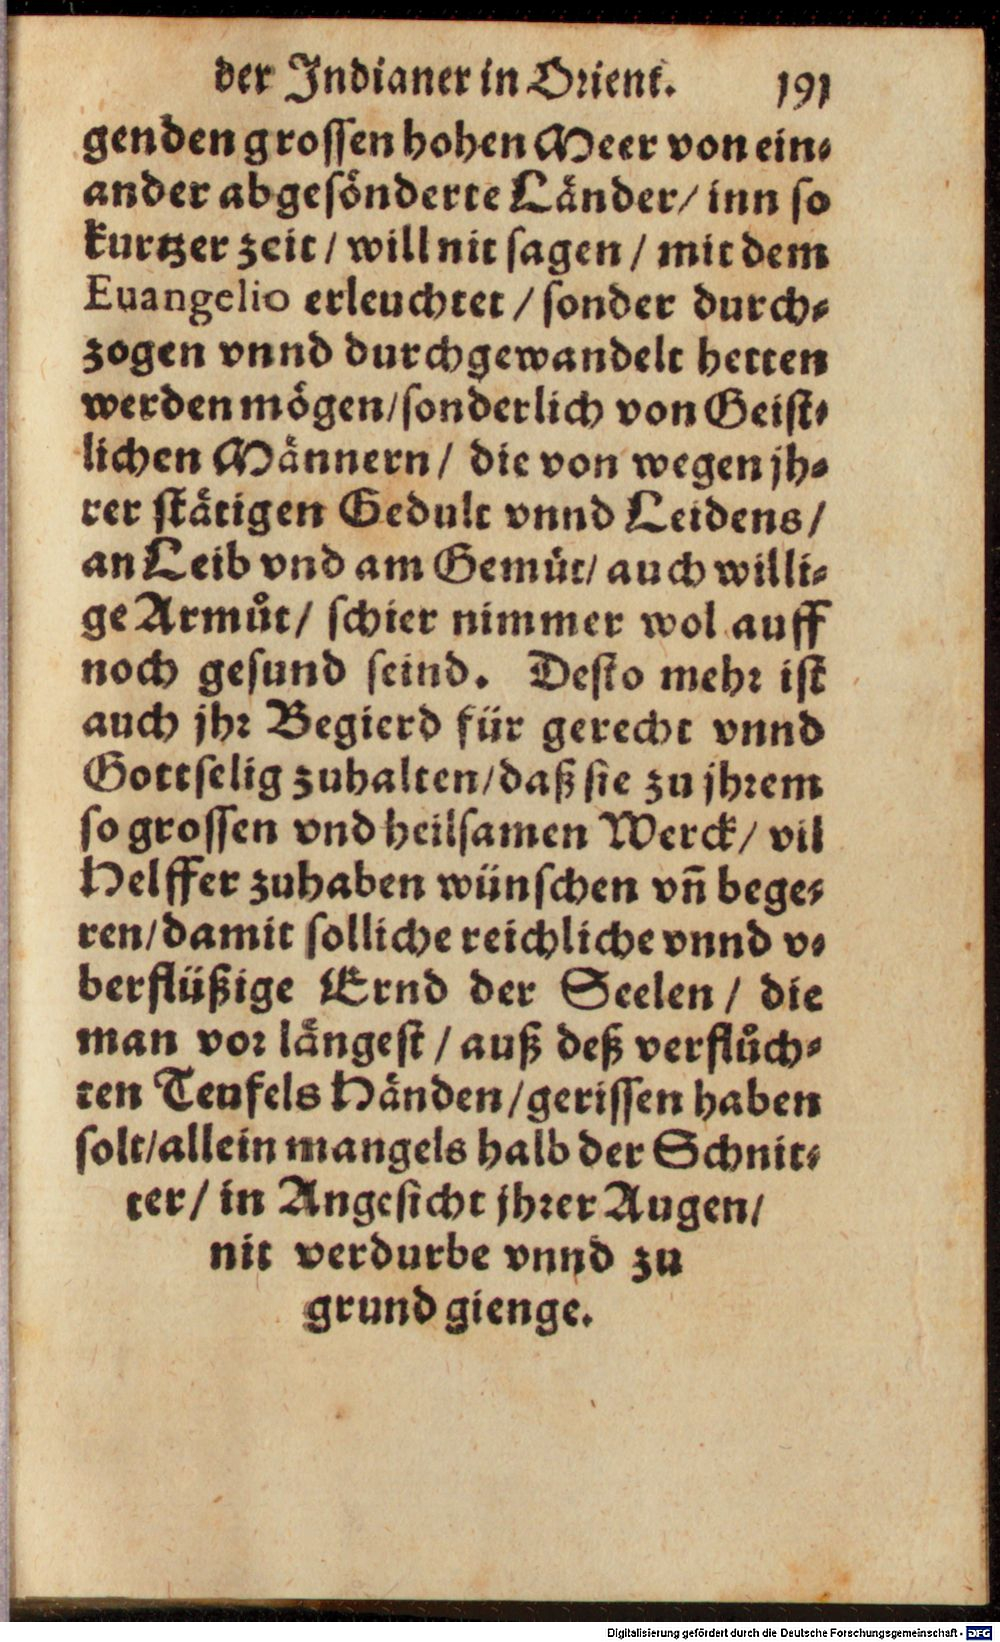 der Jndianer in Orient. 191
genden grossen hohen Meer von ein⸗
ander abgesönderte Länder/ inn so
kurtzer zeit / will nit sagen / mit dem
Euangelio erleuchtet / sonder durch⸗
zogen vnnd durchgewandelt hetten
werden mögen/sonderlich von Geist⸗
lichen Männern / die von wegen jh⸗
rer stätigen Gedult vnnd Leidens /
an Leib vnd am Gemüt/ auch willi⸗
ge Armůt / schier nimmer wol auff
noch gesund seind. Desto mehr ist
auch jhr Begierd für gerecht vnnd
Gottselig zuhalten/daß sie zu jhrem
so grossen vnd heilsamen Werck/ vil
Helffer zuhaben wünschen vñ bege⸗
ren/damit solliche reichliche vnnd v⸗
berflüßige Ernd der Seelen / die
man vor längest / auß deß verflůch⸗
ten Teufels Händen/gerissen haben
solt/allein mangels halb der Schnit⸗
ter / in Angesicht jhrer Augen/
nit verdurbe vnnd zu
grund gienge.
Digitalisierung gefördert durch die Deutsche Forschungsgemeinschaft - DFG